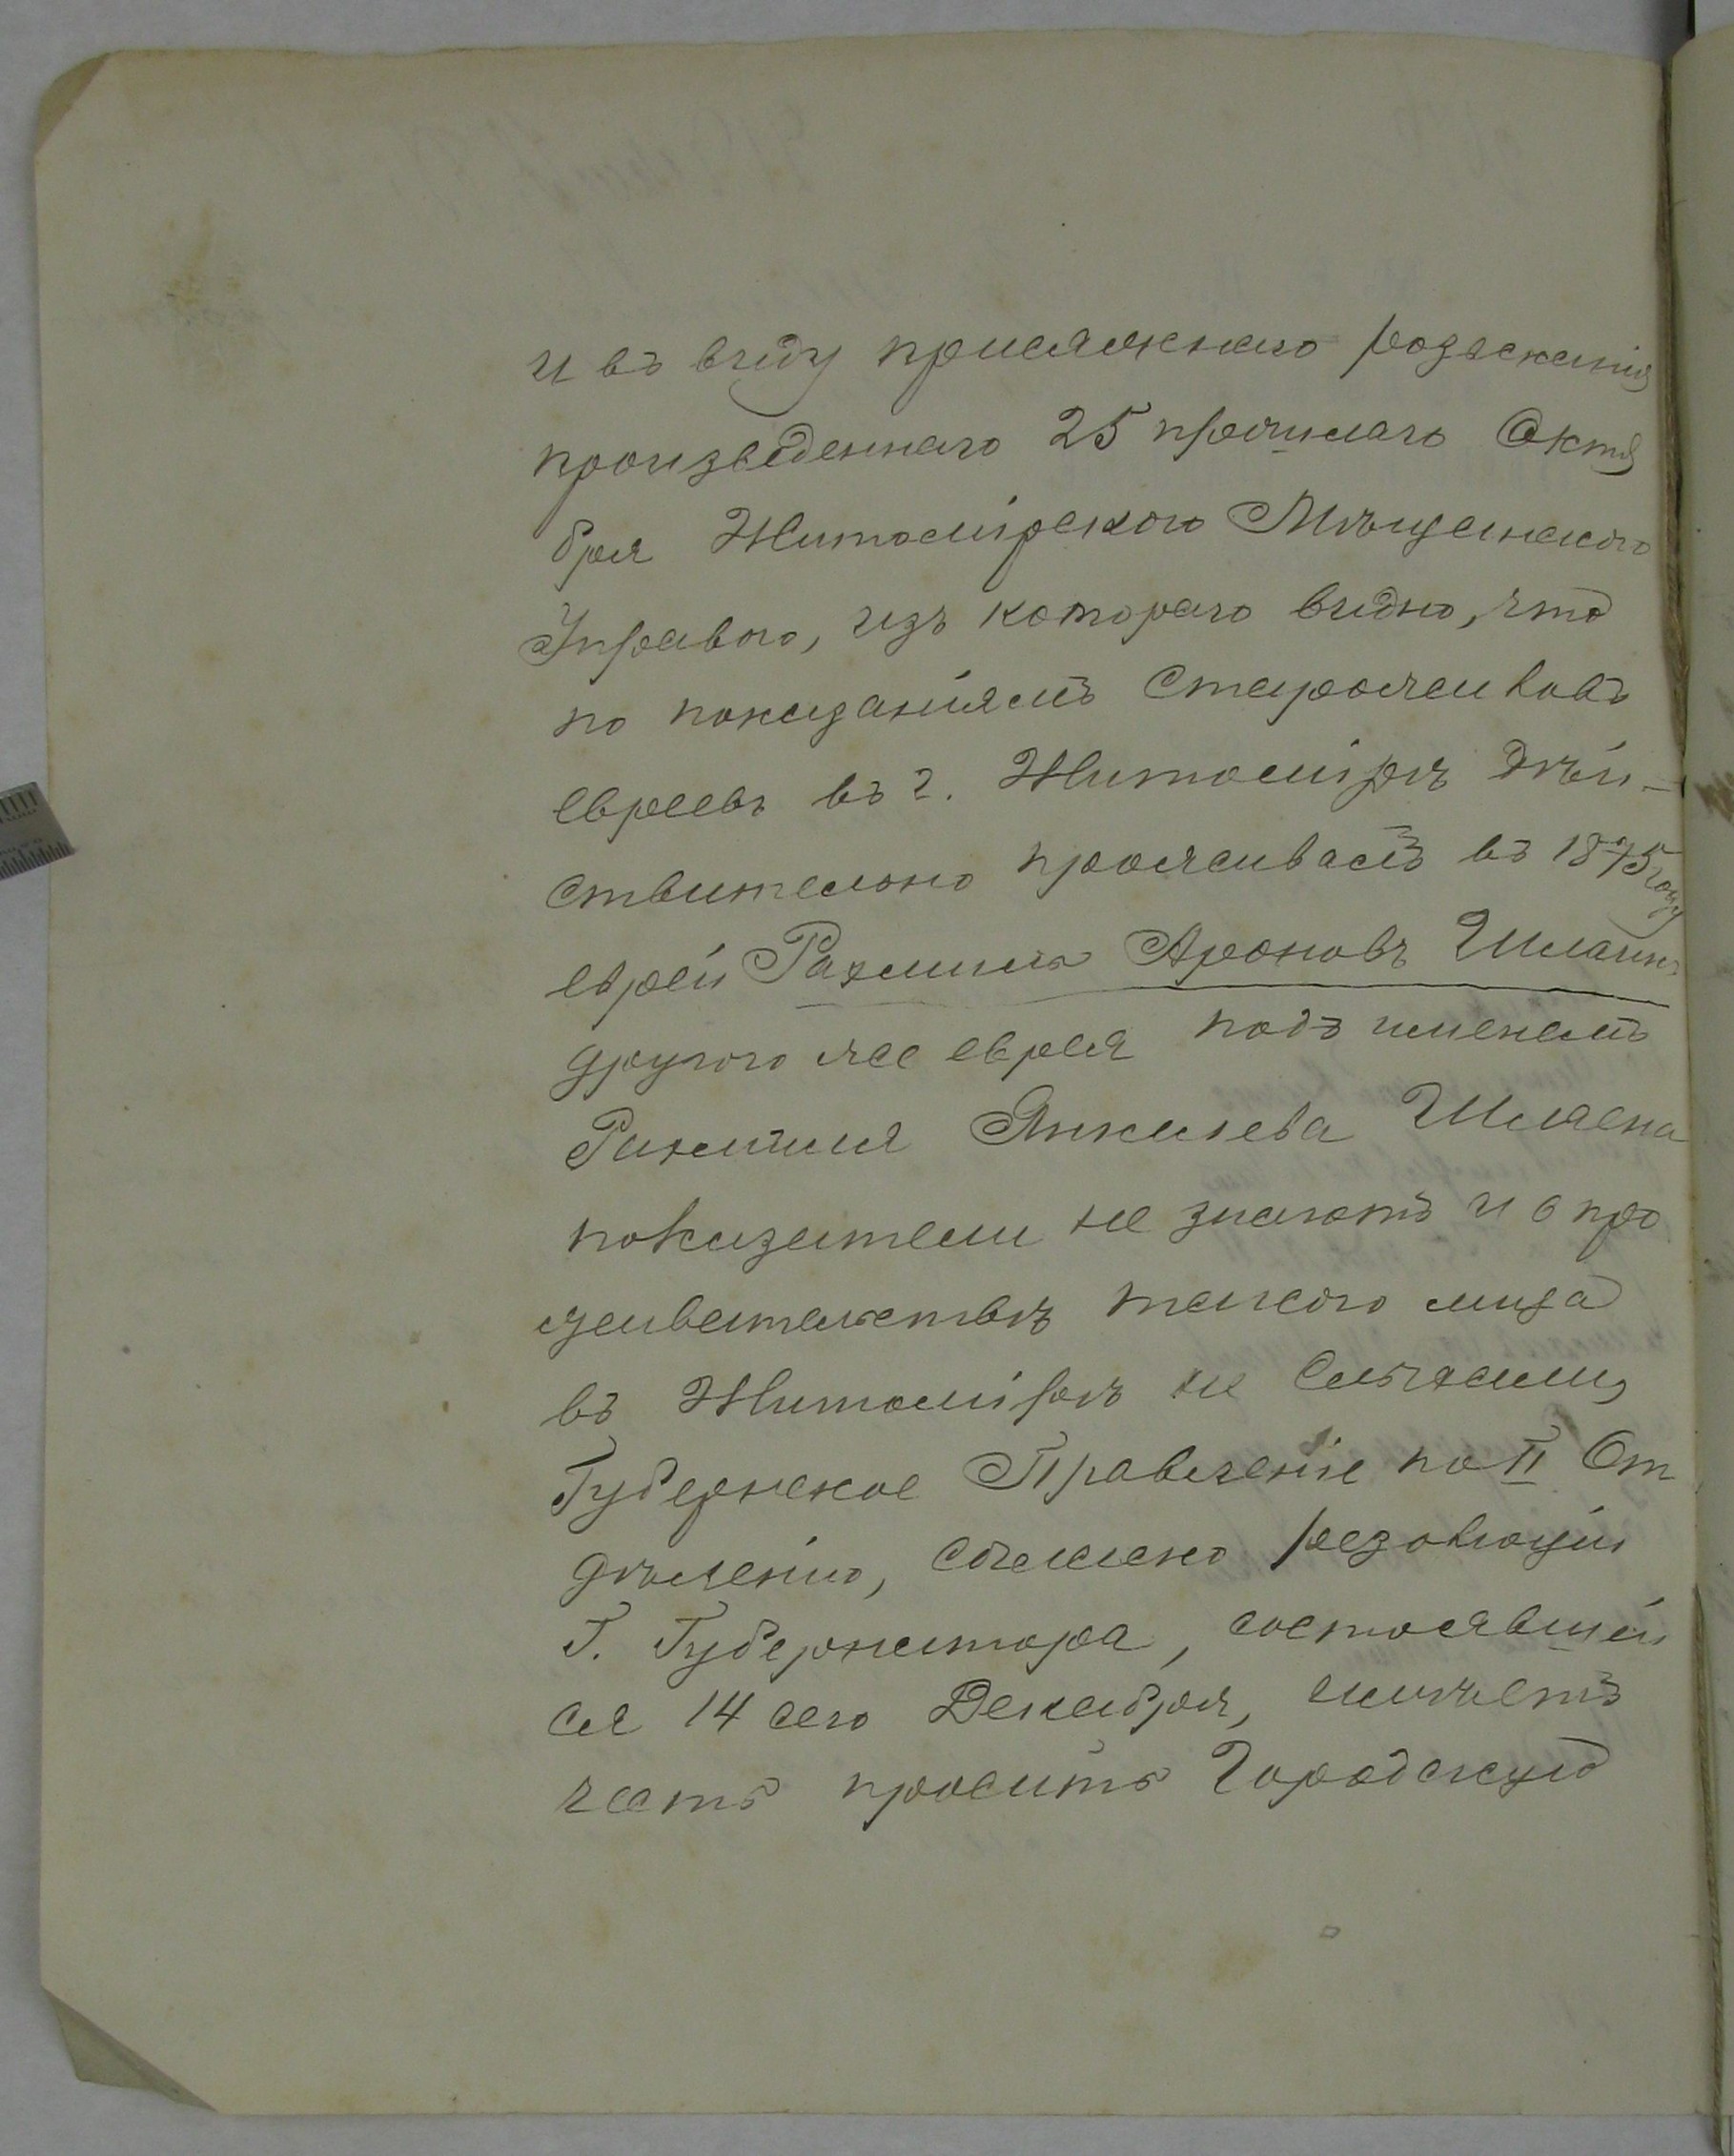 и въ виду присяжнаго розысканія
произведеннаго 25 прошлаго Октя
бря Житомірскою Мѣщанскою
Управою, изъ котораго видно, что
по показаніямъ старожиловъ
евреевъ въ г. Житомірѣ дѣй-
ствительно проживалъ въ 1875 году
еврей Рахмиль Ароновъ Шмаин
другого же еврея подъ именемъ
Рахмиля Янкелева Шмаена
показатели не знаютъ и о про
живательствѣ такого лица
въ Житомірѣ не слыхали,
Губернское Правленіе по II От
дѣленію, согласно резолюціи
Г. Губернатора, состоявшей
ся 14 сего Декабря, имѣетъ
честь просить Городскую